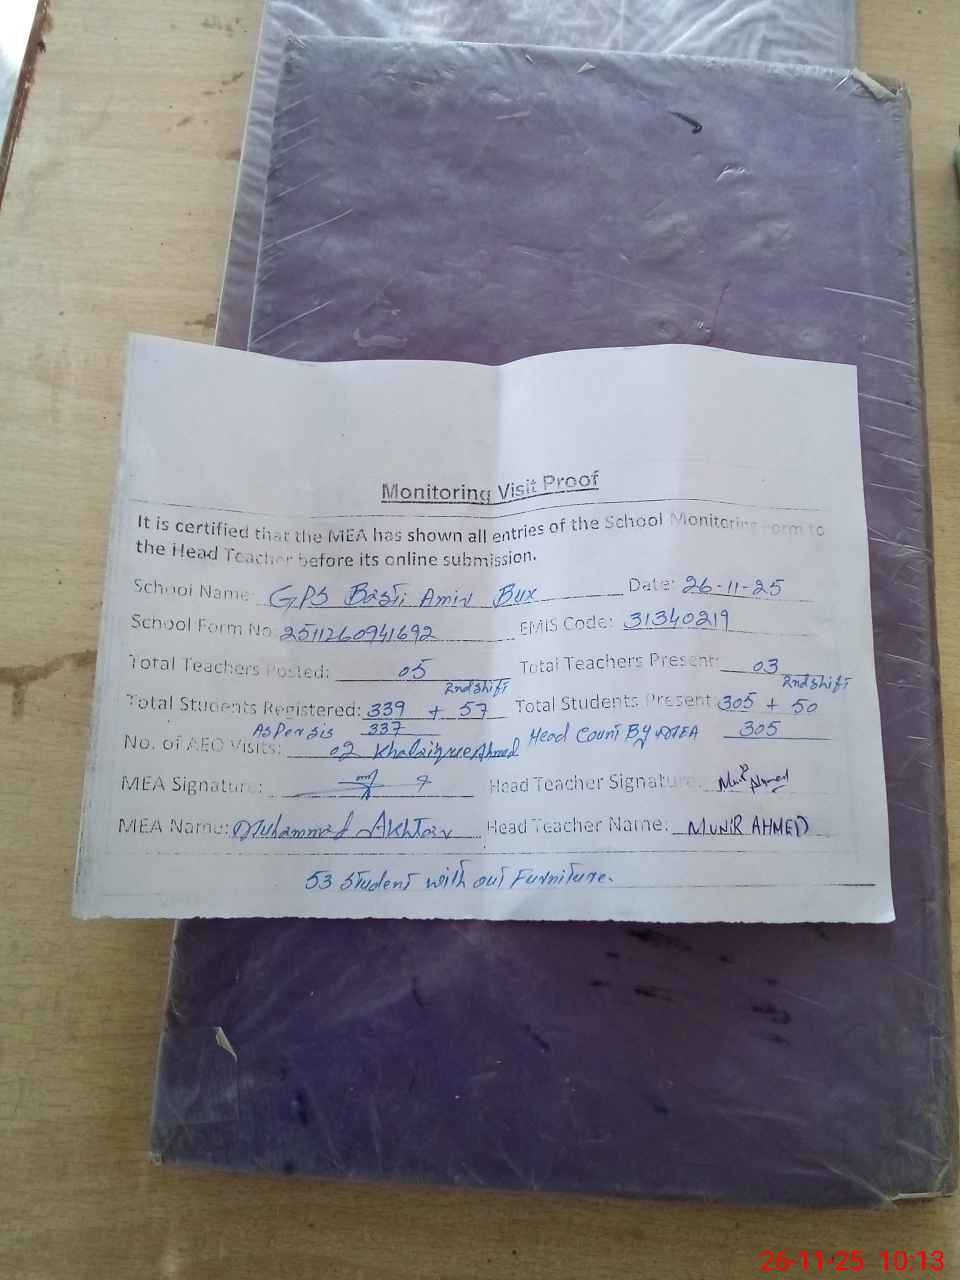 Monitoring Visit Proof
It is certified that the MEA has shown all entries of the School Monitoring Form to
the Head Teacher before its online submission.
School Name: GPS Basti Amin Bux Date: 26-11-25
School Form No: 2511260941692 EMIS Code: 31340219
Total Teachers Posted: 05 Total Teachers Present: 03
2nd shift 2nd shift
Total Students Registered: 339 + 57 Total Students Present 305 + 50
As Per sis 337 Head Count By MEA 305
No. of AEO Visits: 02 Ahmed
MEA Signature: Head Teacher Signature:
MEA Name: Muhammad Akhtar Head Teacher Name: MUNIR AHMED
53 student with out Furniture.
26-11-25 10:13